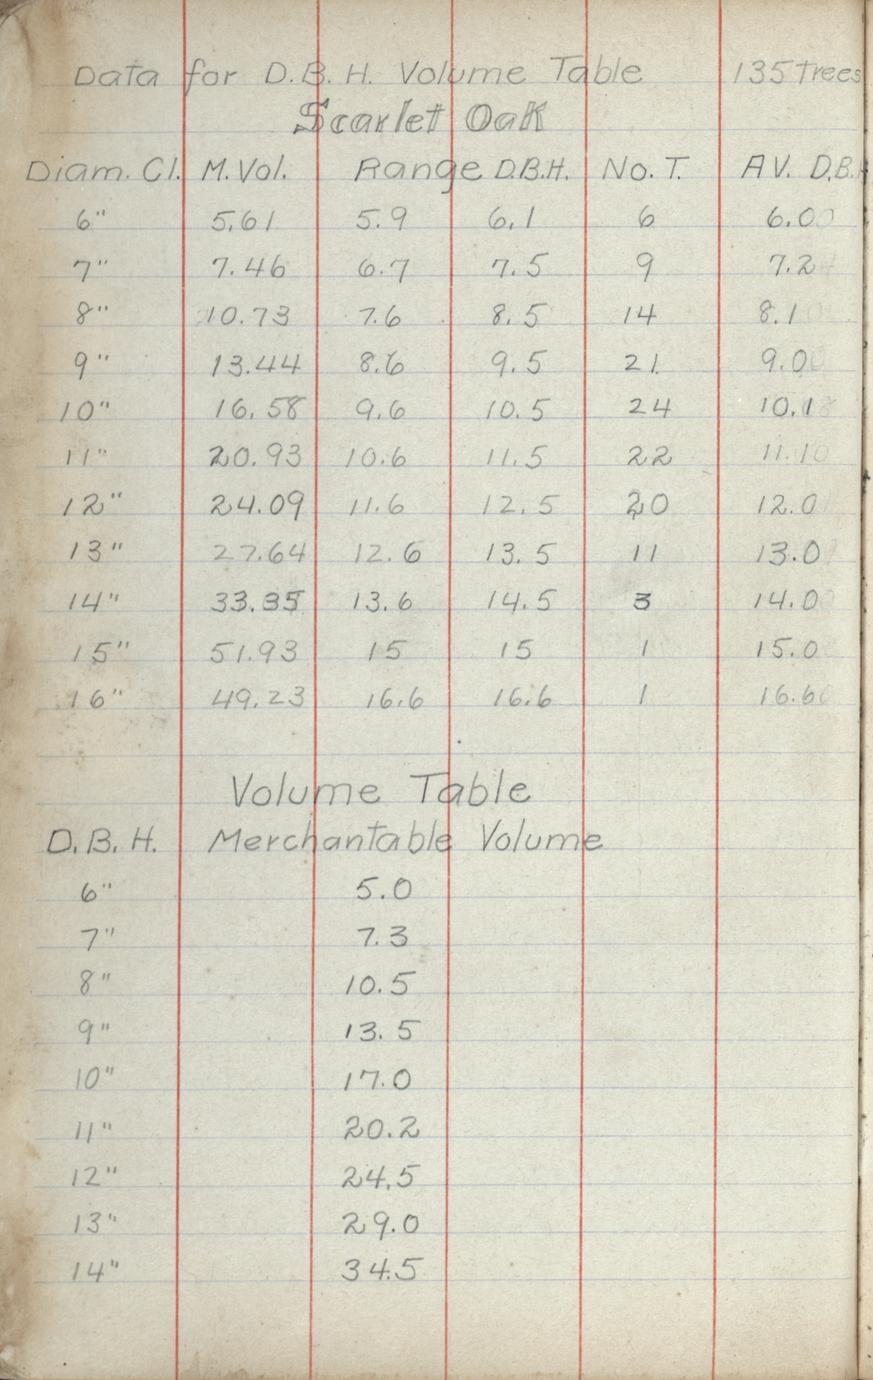 Data for D.B.H. Volume Table 135 Trees
Scarlet Oak
Diam. Cl. M.Vol. Range D.B.H. No. T. AV. D.B.H
6" 5.61 5.9 6.1 6 6.00
7" 7.46 6.7 7.5 9 7.2
8" 10.73 7.6 8.5 14 8.1
9" 13.44 8.6 9.5 21 9.0
10" 16.58 9.6 10.5 24 10.1
11" 20.93 10.6 11.5 22 11.10
12" 24.09 11.6 12.5 20 12.0
13" 27.64 12.6 13.5 11 13.0
14" 33.35 13.6 14.5 3 14.0
15" 51.93 15 15 1 15.0
16" 49.23 16.6 16.6 1 16.6
Volume Table
D.B.H. Merchantable Volume
6" 5.0
7" 7.3
8" 10.5
9" 13.5
10" 17.0
11" 20.2
12" 24.5
13" 29.0
14" 34.5